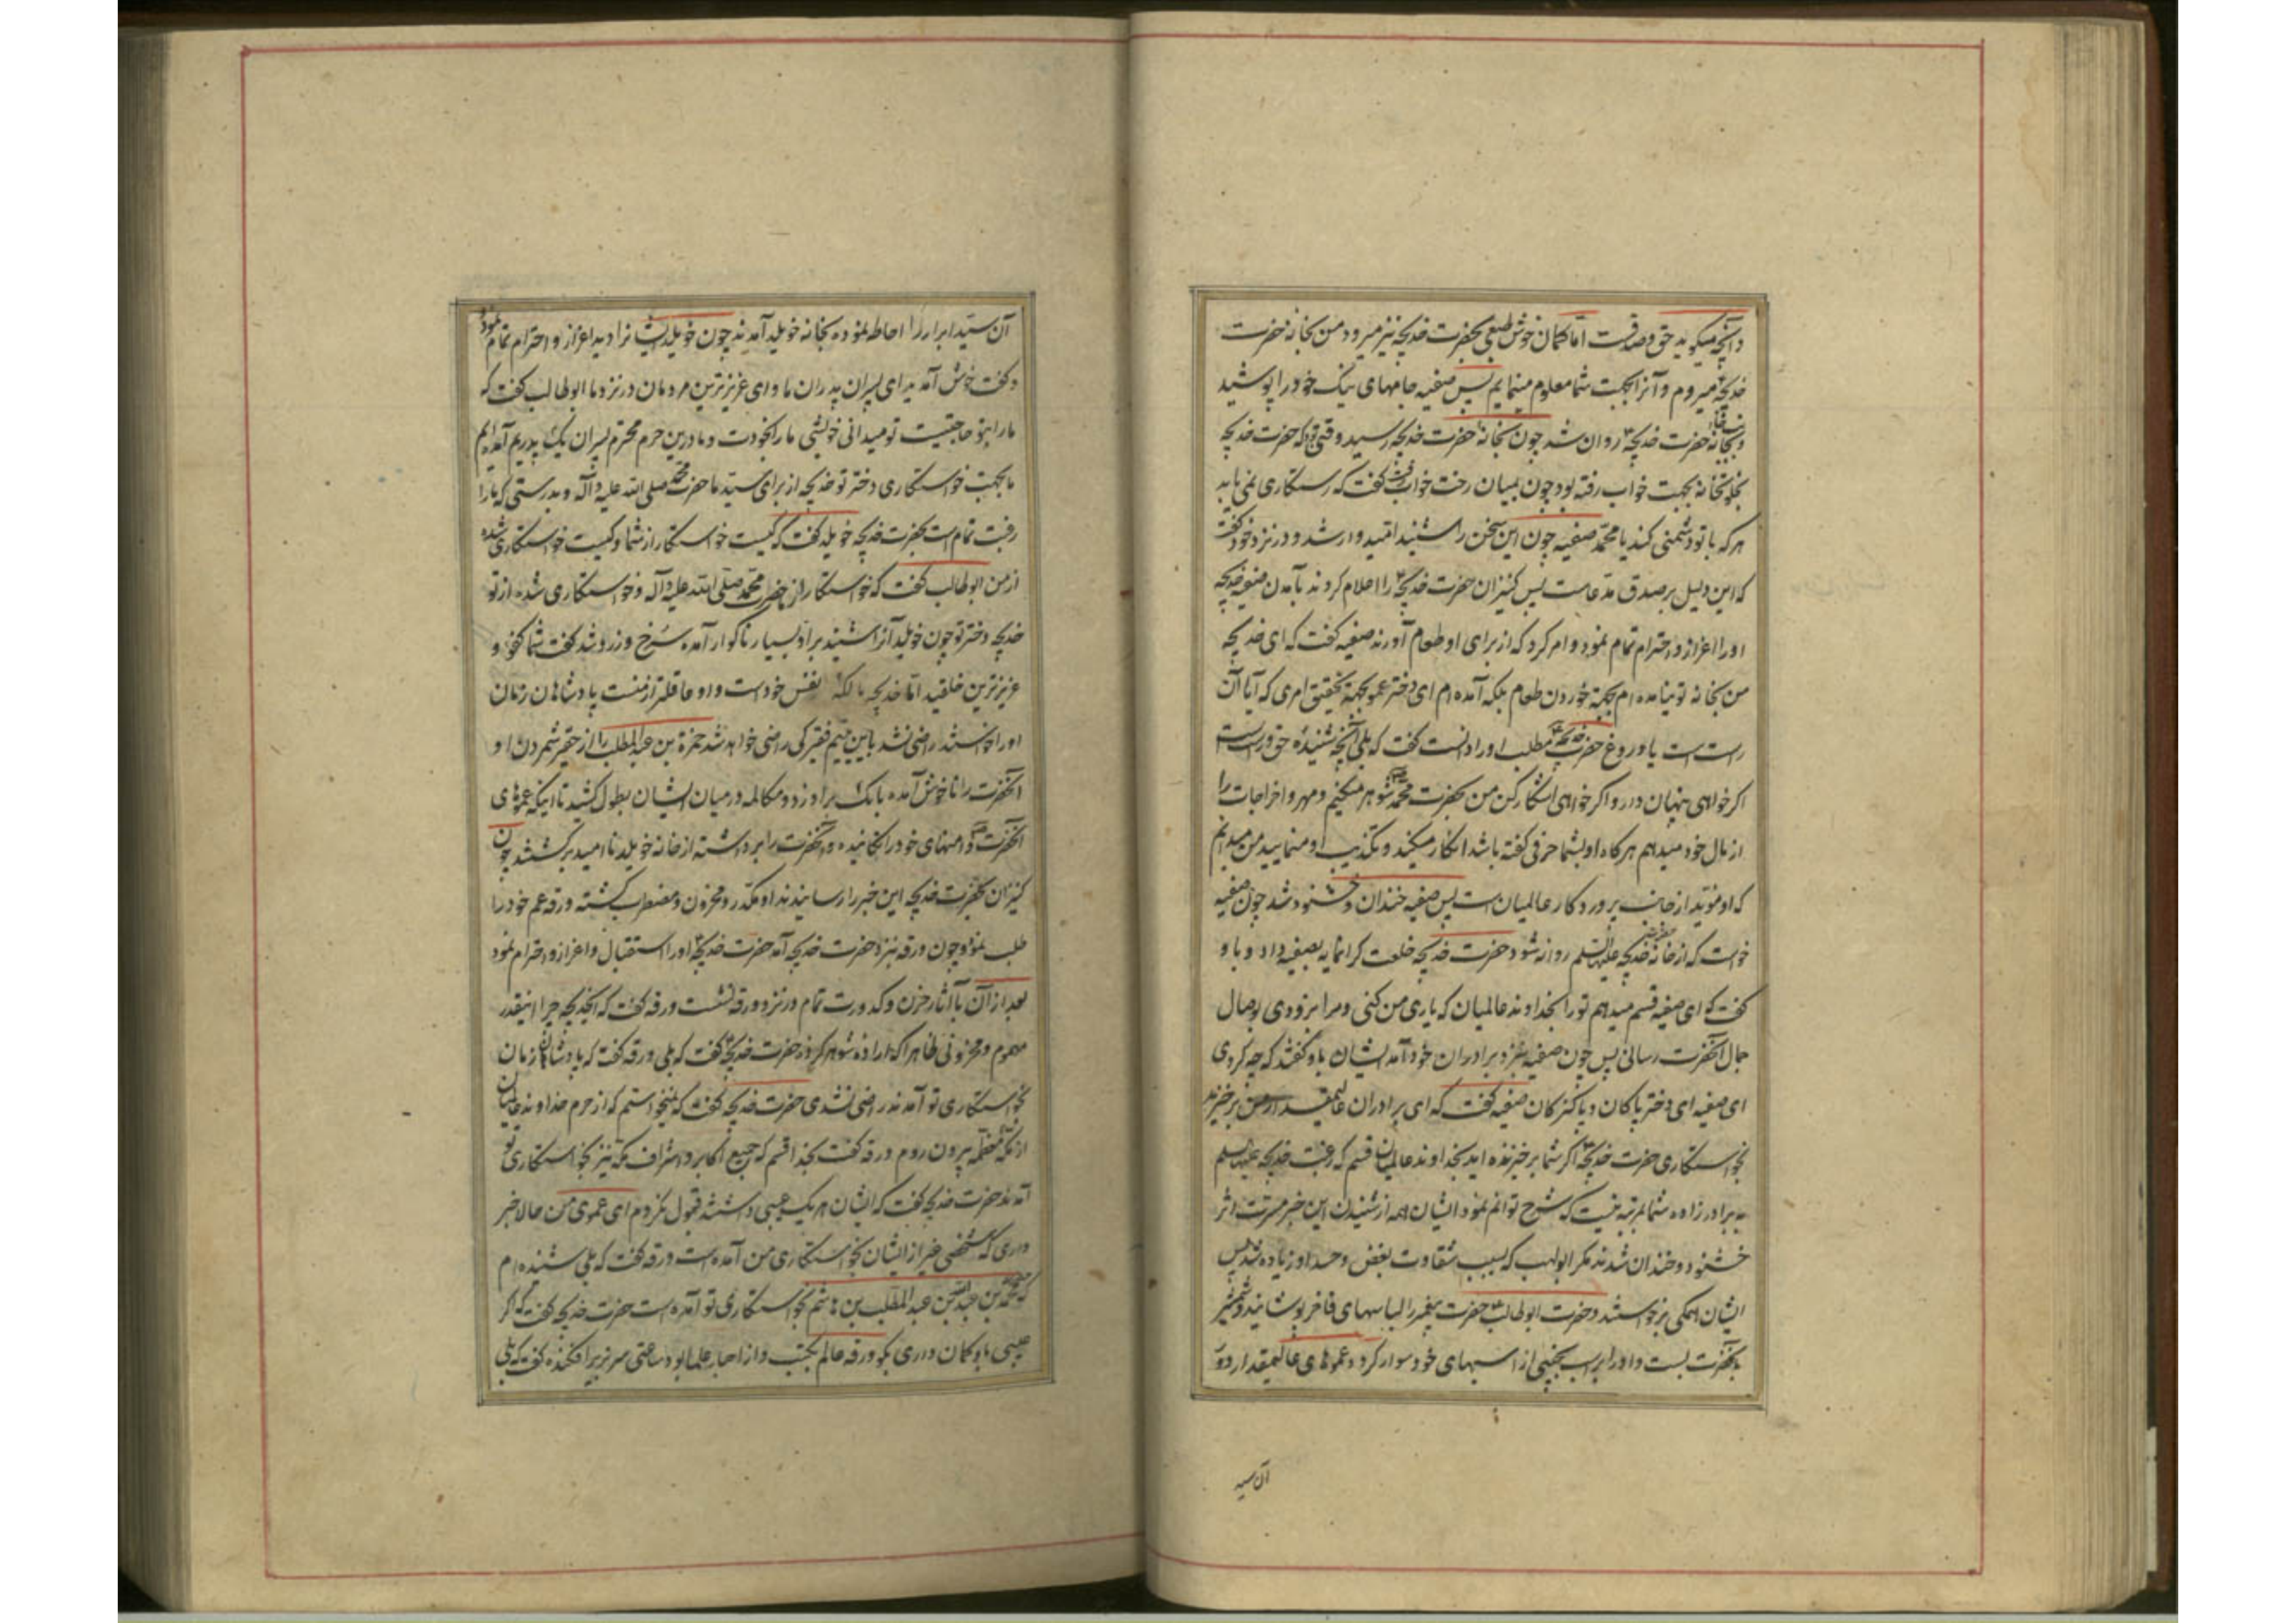 و آنچه میگوید حق و صدقست اما کمان خوش طبعی بحضرت خدیجه نیز میرود من بخانه حضرت
خدیجه میروم و آنرا بجهت شما معلوم مینمایم پس صفیه جامهای نیک خود را پوشید
و بخانه حضرت خدیجه روان شد چون بخانه حضرت خدیجه رسید وقتی بود که حضرت خدیجه
بخلوتخانه بجهت خواب رفته بود چون بمیان رخت خواب رفت گفت که رستکاری نمی یابد
هر که با تو دشمنی کند یا محمد صفیه چون این سخن را شنید امیدوار شد و در نزد خود گفت
که این دلیل بر صدق مدعاست پس کنیزان حضرت خدیجه را اعلام کردند بآمدن صفیه خدیجه
او را اعزاز و احترام تمام نمود و امر کرد که از برای او طعام آورند صفیه گفت که ای خدیجه
من بخانه تو نیامده ام بجهة خوردن طعام بلکه آمده ام ای دختر عمو بجهة تحقیق امری که آیا آن
راست است یا دروغ حضرت خدیجه مطلب او را دانست گفت که بلی آنچه شنیدهٔ حق و راست است
اکر خواهی پنهان دار و اکر خواهی آشکار کن من بحضرت محمد شوهر میکنم و مهر و اخراجات را
از مال خود میدهم هرکاه او بشما حرفی گفته باشد انکار میکنید و تکذیب او منمایید من میدانم
که او مؤید از جانب پروردکار عالمیان است پس صفیه خندان و خشنود شد چون صفیه
خواست که از خانه حضرت خدیجه علیها السلام روانه شود حضرت خدیجه خلعت کرانمایه بصفیه داد و باو
گفت که ای صفیه قسم میدهم تو را بخداوند عالمیان که یاری من کنی و مرا بزودی بوصال
جمال آنحضرت رسانی پس چون صفیه بنزد برادران خود آمد ایشان باو گفتند که چه کردی
ای صفیه ای دختر پاکان و پاکیزکان صفیه گفت که ای برادران عالیمقدار من برخیزید
بخواستکاری حضرت خدیجه اکر شما برخیزنده اید بخداوند عالمیان قسم که رغبت خدیجه علیها السلام
به برادرزاده شما بمرتبه نیست که شرح توانم نمود ایشان همه از شنیدن این خبر مسرت اثر
خشنود و خندان شدند مکر ابولهب که بسبب شقاوت بغض و حسد او زیاده شد پس
ایشان همکی برخواستند و حضرت ابوطالب حضرت پیغمبر را لباسهای فاخر پوشانید و شمشیر
بآنحضرت بست و او را بر اسب نجیبی از اسبهای خود سوار کرد و عموهای عالیمقدار دور
آن سید
آن سید ابرار را احاطه نموده بخانه خویلد آمدند چون خویلد ایشانرا دید اعزاز و احترام تمام نمود
و گفت خوش آمدید ای پسران پدران ما و ای عزیزترین مردمان در نزد ما ابوطالب گفت که
ما را بتو حاجتیست تو میدانی خویشی ما را بخودت و ما درین حرم محترم پسران یک پدریم آمده ایم
ما بجهت خواستکاری دختر تو خدیجه از برای سید ما حضرت محمد صلی الله علیه و آله و بدرستی که ما را
رغبت تمام است بحضرت خدیجه خویلد گفت که کیست خواستکار از شما و کیست خواستکاری شده
از من ابوطالب گفت که خواستکار از حضرت محمد صلی الله علیه و آله و خواستکاری شده از تو
خدیجه دختر تو چون خویلد آنرا شنید بر او بسیار ناکوار آمده سرخ و زرد شد گفت شما کفو و
عزیزترین خلقید اما خدیجه مالکه نفس خود است و او عاقلتر از منست پادشاهان زمان
او را خواستند راضی نشد باین یتیم فقیر کی راضی خواهد شد حمزة بن عبد المطلب را از حقیر شمردن او
آنحضرت را ناخوش آمده بانک بر او زد و مکالمه در میان ایشان بطول کشید تا اینکه عموهای
آنحضرت دامنهای خود را تکانیده و آنحضرت را برداشته از خانه خویلد ناامید برکشتند چون
کنیزان بحضرت خدیجه این خبر را رسانیدند او مکدر و محزون و مضطرب کشته ورقه عم خود را
طلب نمود چون ورقه بنزد حضرت خدیجه آمد حضرت خدیجه او را استقبال و اعزاز و احترام نمود
بعد از آن با آثار حزن و کدورت تمام در نزد ورقه نشست ورقه گفت که ایخدیجه چرا اینقدر
مهموم و محزونی ظاهرا که اراده شوهر کرده حضرت خدیجه گفت که بلی ورقه گفت که پادشاهان زمان
بخواستکاری تو آمدند راضی نشدی حضرت خدیجه گفت که نمیخواستم که از حرم خداوند عالمیان
از مکه معظمه بیرون روم ورقه گفت بخدا قسم که جمیع اکابر و اشراف مکه نیز بخواستکاری تو
آمدند حضرت خدیجه گفت که ایشان هر یک عیبی داشتند قبول نکردم ای عموی من حالا خبر
داری که شخصی غیر از ایشان بخواستکاری من آمده است ورقه گفت که بلی شنیده ام
که محمد بن عبد الله بن عبد المطلب بن هاشم بخواستکاری تو آمده است حضرت خدیجه گفت که اکر
عیبی باو کمان داری بکو ورقه عالم بکتب و از احبار علما بود ساعتی سر بزیر افکنده گفت که بلی